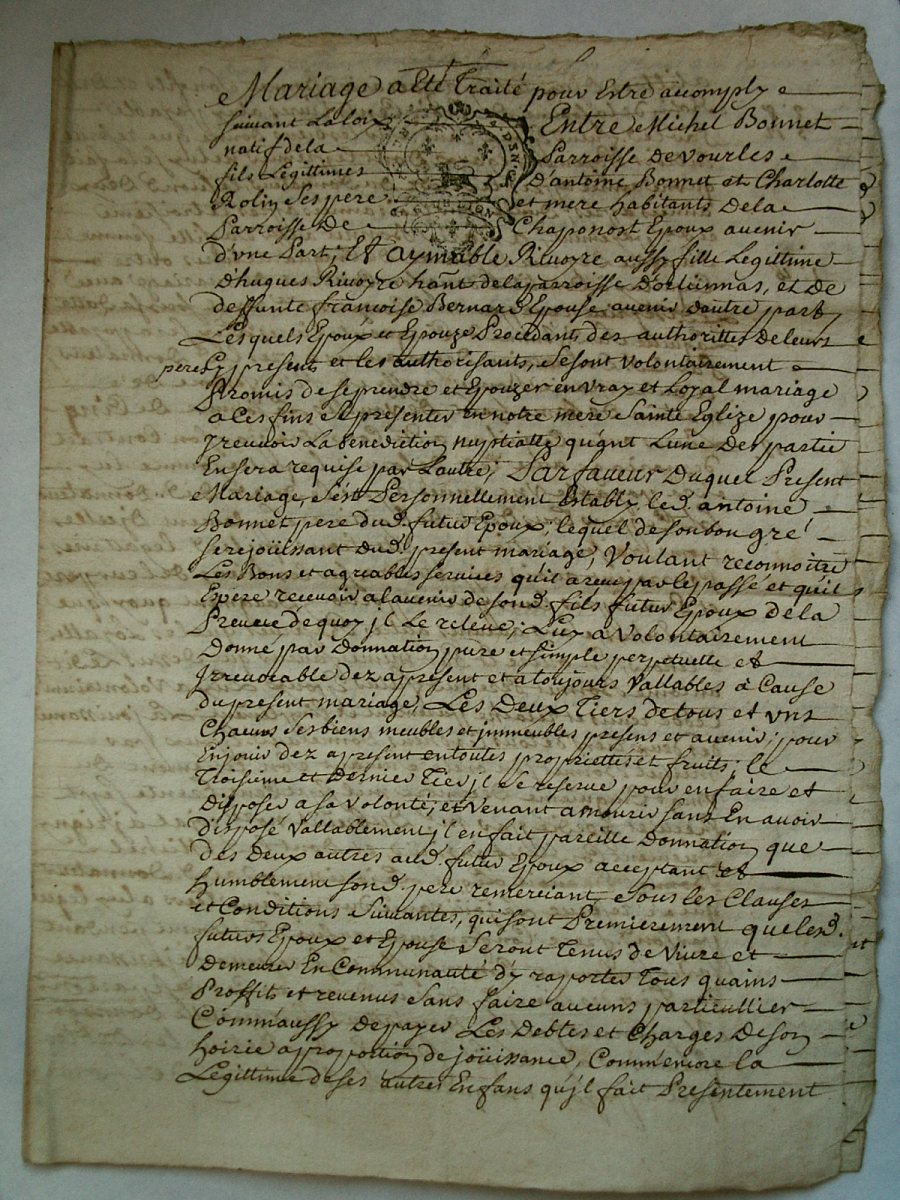 Mariage a Eté Traité pour Estre accomply
suivant La loix Entre Michel Bonnet
natif de la Parroisse de vourles
fils Legittimes D'antoine Bonnet et Charlotte
Rolin Ses pere et mere habitants De la
Parroisse De Chaponost Epoux avenir
d'vne Part; Et aymable Riuoyre aussy fille Legittime
D'hugues Riuoyre hant de la parroisse D'orliennas, et De
deffunte francoise Bernard Epouse avenir Dautre part,
Lesquels Epoux et Epouze Procedants des authorittes De leurs
peres Cy presents et les authorisants, se sont volontairement
Promis de se prendre et Epouzer en vray et Loyal mariage
a Ces fins se presenter en notre mere Sainte Eglize pour
y receuoir La benediction nuptialle quant Lune Des partie
En sera requise par Lautre; Par faveur Duquel Present
Mariage, s'est Personnellement Establÿ led. antoine
Bonnet pere dud. futur Epoux, lequel de son bon gré
se rejoüissant dud. present mariage, Voulant reconnoitre
Les Bons et agreables services qu'il a receu par le passé et qu'il
Espere receuoir a lavenir de sond. fils futur Epoux De la
Preuve de quoy jl Le releve; Luy a Volontairement
Donné par Donnation pure et simple perpetuelle et
Jrreuocable dez apresent et a toujours Vallables a Cause
du present mariage, Les Deux Tiers de tous et vns
Chacuns Ses biens meubles et jmmeubles presens et avenir; pour
En jouir dez apresent en toutes proprietté et fruits; le
Troisieme et Dernier Tier jl se reserve pour en faire et
disposer a sa volonté; et venant a mourir sans En avoir
disposé Vallablement jl en fait pareille Donnation que
des Deux autres aud. futur Epoux acceptant et
humblement sond. pere remerciant, Sous les Clauses
et Conditions Suivantes, qui sont Premierement que lesd.
futurs Epoux et Epouse Seront Tenus de Vivre et
Demeurer En Communauté d'y raporter Tous gains
Proffits et revenus Sans faire aucuns particullier
Comm'aussy De payer Les Debtes et Charges De son
hoirie a proportion de joüissance, Comme encore la
Legittime de ses autres Enfans qu'jl fait Presentement